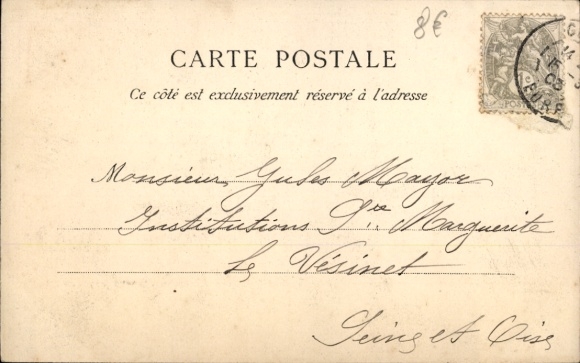 8€
CARTE POSTALE
Ce côté est exclusivement réservé à l'adresse
Monsieur Jules Mayor
Institutions Ste Marguerite
Le Vésinet
Seine et Oise